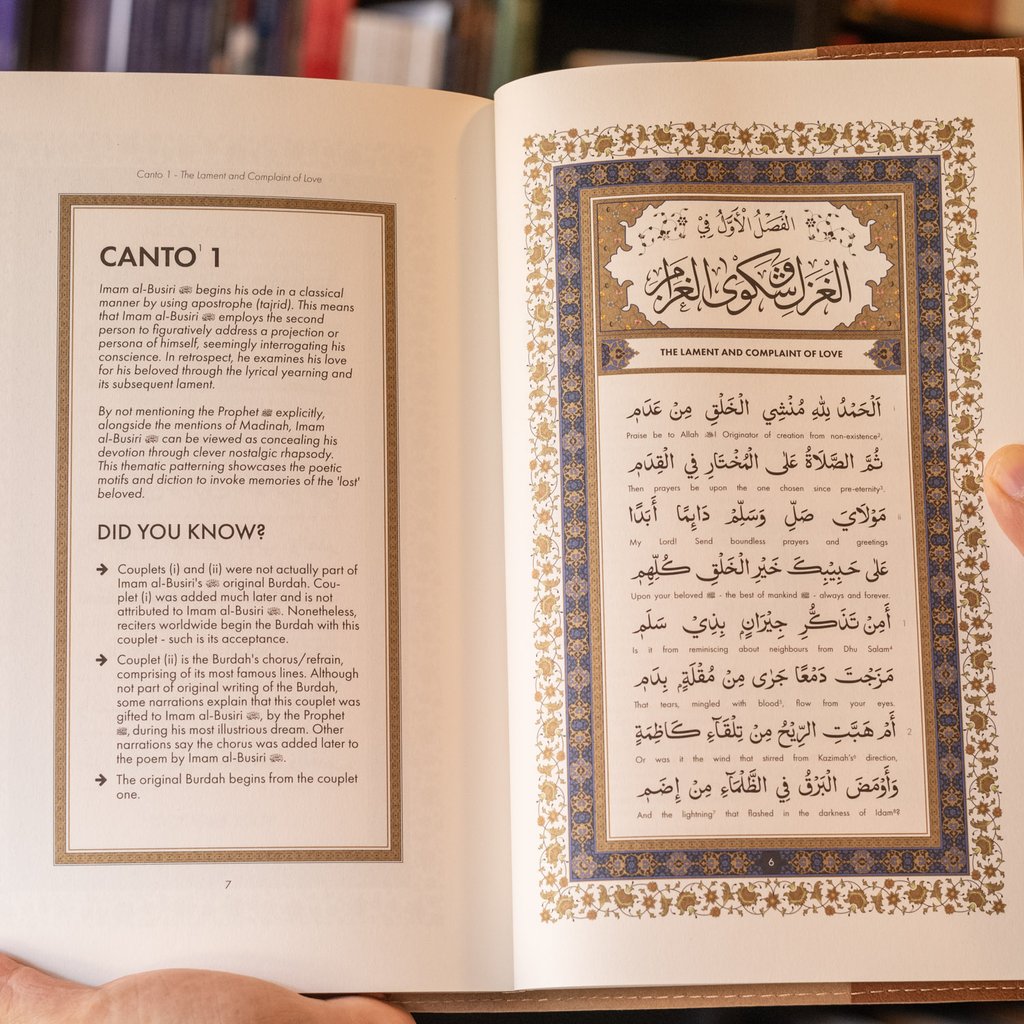 Canto 1 - The Lament and Complaint of Love
CANTO¹ 1
Imam al-Busiri begins his ode in a classical
manner by using apostrophe (tajrid). This means
that Imam al-Busiri employs the second
person to figuratively address a projection or
persona of himself, seemingly interrogating his
conscience. In retrospect, he examines his love
for his beloved through the lyrical yearning and
its subsequent lament.
By not mentioning the Prophet ﷺ explicitly,
alongside the mentions of Madinah, Imam
al-Busiri can be viewed as concealing his
devotion through clever nostalgic rhapsody.
This thematic patterning showcases the poetic
motifs and diction to invoke memories of the 'lost'
beloved.
DID YOU KNOW?
→ Couplets (i) and (ii) were not actually part of
Imam al-Busiri's original Burdah. Cou-
plet (i) was added much later and is not
attributed to Imam al-Busiri. Nonetheless,
reciters worldwide begin the Burdah with this
couplet - such is its acceptance.
→ Couplet (ii) is the Burdah's chorus/refrain,
comprising of its most famous lines. Although
not part of original writing of the Burdah,
some narrations explain that this couplet was
gifted to Imam al-Busiri, by the Prophet
ﷺ, during his most illustrious dream. Other
narrations say the chorus was added later to
the poem by Imam al-Busiri.
→ The original Burdah begins from the couplet
one.
7
الفَصْلُ الْأَوَّلُ فِي
الغَزَلِ وَشَكْوَى الغَرَامِ
THE LAMENT AND COMPLAINT OF LOVE
اَلْحَمْدُ لِلّٰهِ مُنْشِي الْخَلْقِ مِنْ عَدَمِ i
Praise be to Allah ! Originator of creation from non-existence²,
ثُمَّ الصَّلَاةُ عَلَى الْمُخْتَارِ فِي الْقِدَمِ
Then prayers be upon the one chosen since pre-eternity³.
مَوْلَايَ صَلِّ وَسَلِّمْ دَايِمًا أَبَدًا ii
My Lord! Send boundless prayers and greetings
عَلَى حَبِيْبِكَ خَيْرِ الْخَلْقِ كُلِّهِمِ
Upon your beloved ﷺ - the best of mankind ﷺ - always and forever.
أَمِنْ تَذَكُّرِ جِيْرَانٍ بِذِيْ سَلَمِ 1
Is it from reminiscing about neighbours from Dhu Salam⁴
مَزَجْتَ دَمْعًا جَرَى مِنْ مُقْلَةٍ بِدَمِ
That tears, mingled with blood⁵, flow from your eyes.
أَمْ هَبَّتِ الرِّيْحُ مِنْ تِلْقَاءِ كَاظِمَةٍ 2
Or was it the wind that stirred from Kazimah's⁶ direction,
وَأَوْمَضَ الْبَرْقُ فِي الظَّلْمَاءِ مِنْ إِضَمِ
And the lightning⁷ that flashed in the darkness of Idam⁸?
6